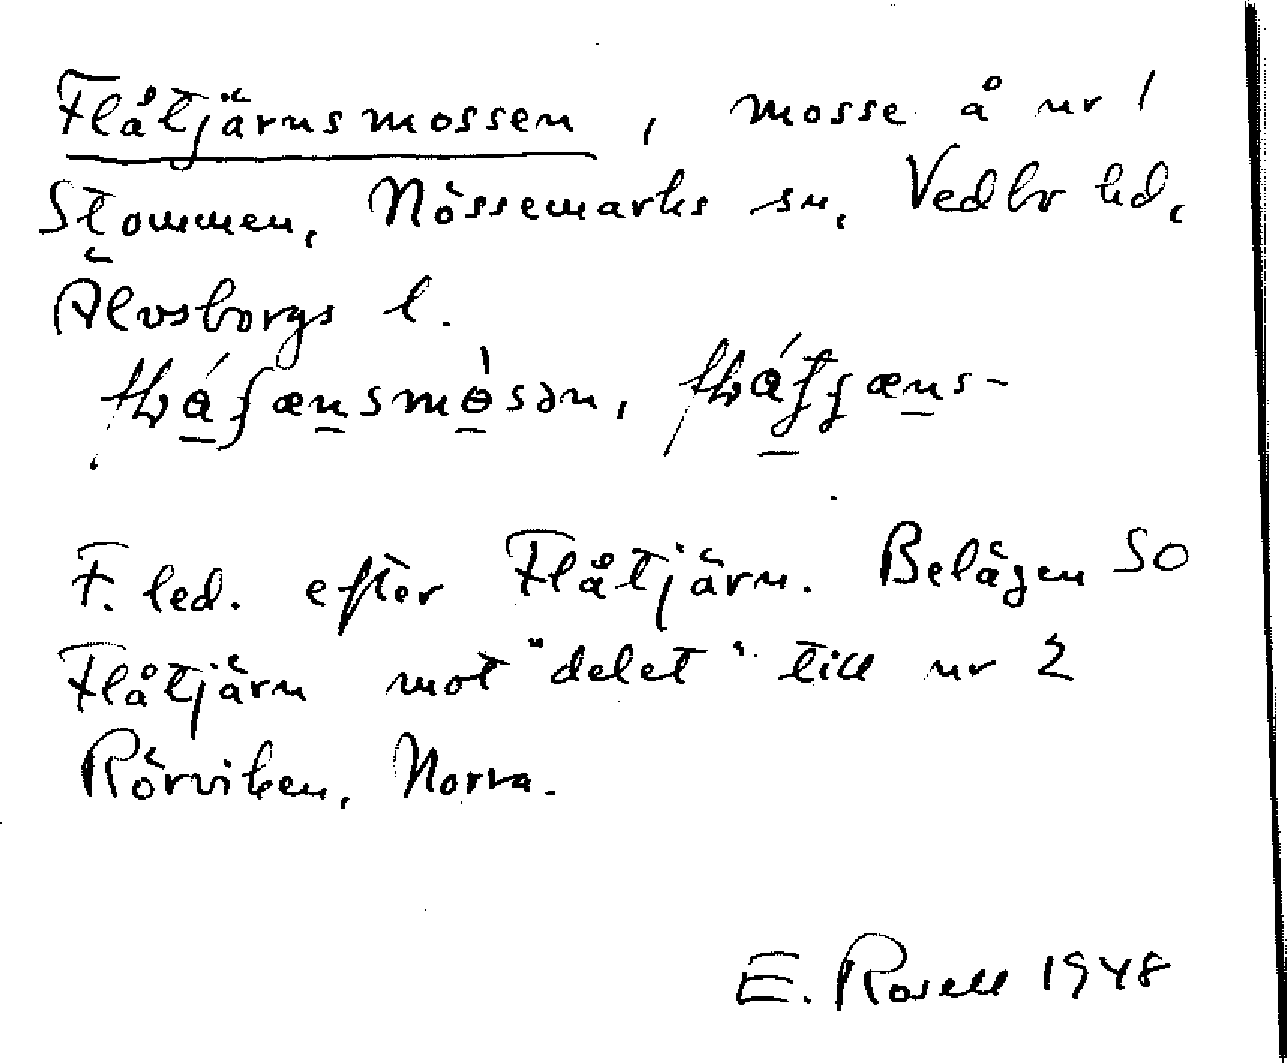 Flåtjärnsmossen, mosse å nr 1
Stommen, Nössemarks sn, Vedbo hd,
Älvsborgs l.
F. led. efter Flåtjärn. Belägen SO
Flåtjärn mot "delet" till nr 2
Rörviken, Norra.
E. Rosell 1948